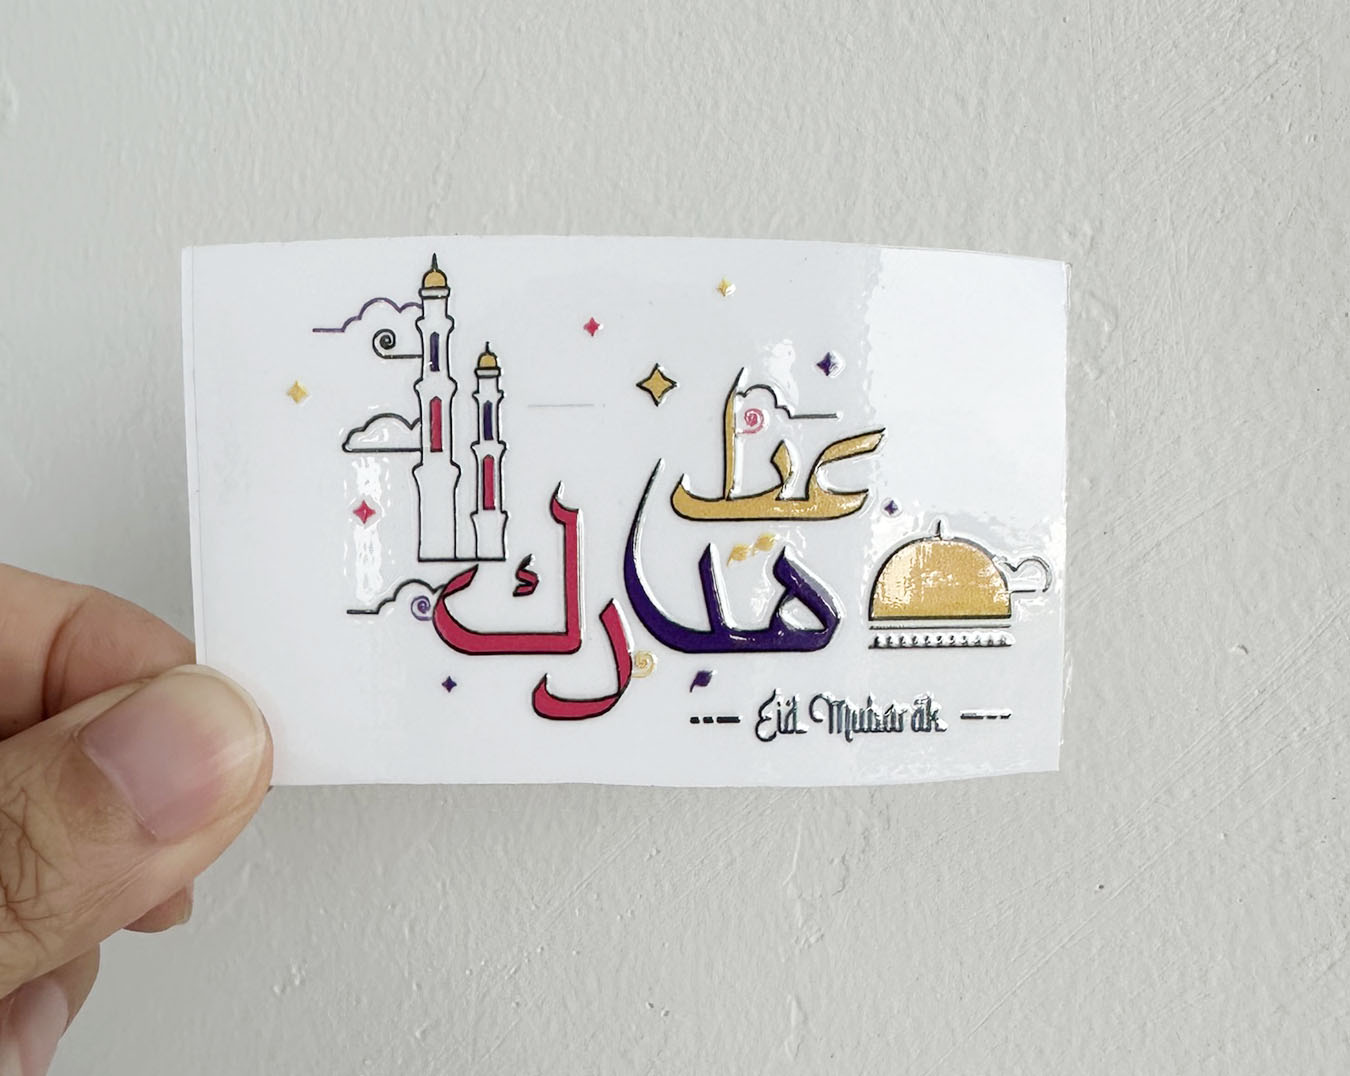 عيد
مبارك
Eid Mubarak